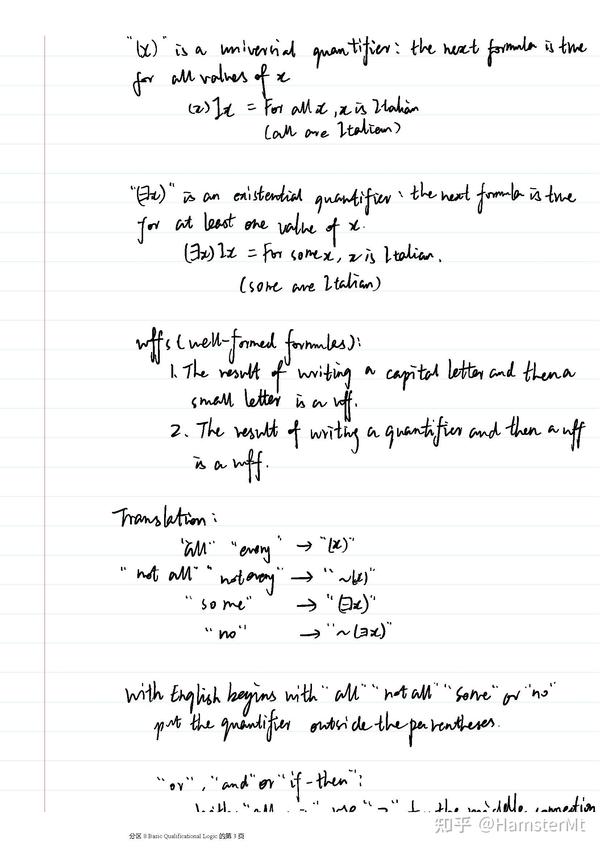 "(x)" is a universal quantifier: the next formula is true
for all values of x
(x)Ix = For all x, x is Italian
(all are Italian)
"(∃x)" is an existential quantifier: the next formula is true
for at least one value of x.
(∃x)Ix = For some x, x is Italian.
(some are Italian)
wffs (well-formed formulas):
1. The result of writing a capital letter and then a
small letter is a wff.
2. The result of writing a quantifier and then a wff
is a wff.
Translation:
"all" "every" → "(x)"
"not all" "not every" → "~(x)"
"some" → "(∃x)"
"no" → "~(∃x)"
With English begins with "all" "not all" "some" or "no"
put the quantifier outside the parentheses.
"or", "and" or "if-then":
"all the middle connection
知乎 @HamsterMt
分区 8 Basic Qualificational Logic 的第 3 页